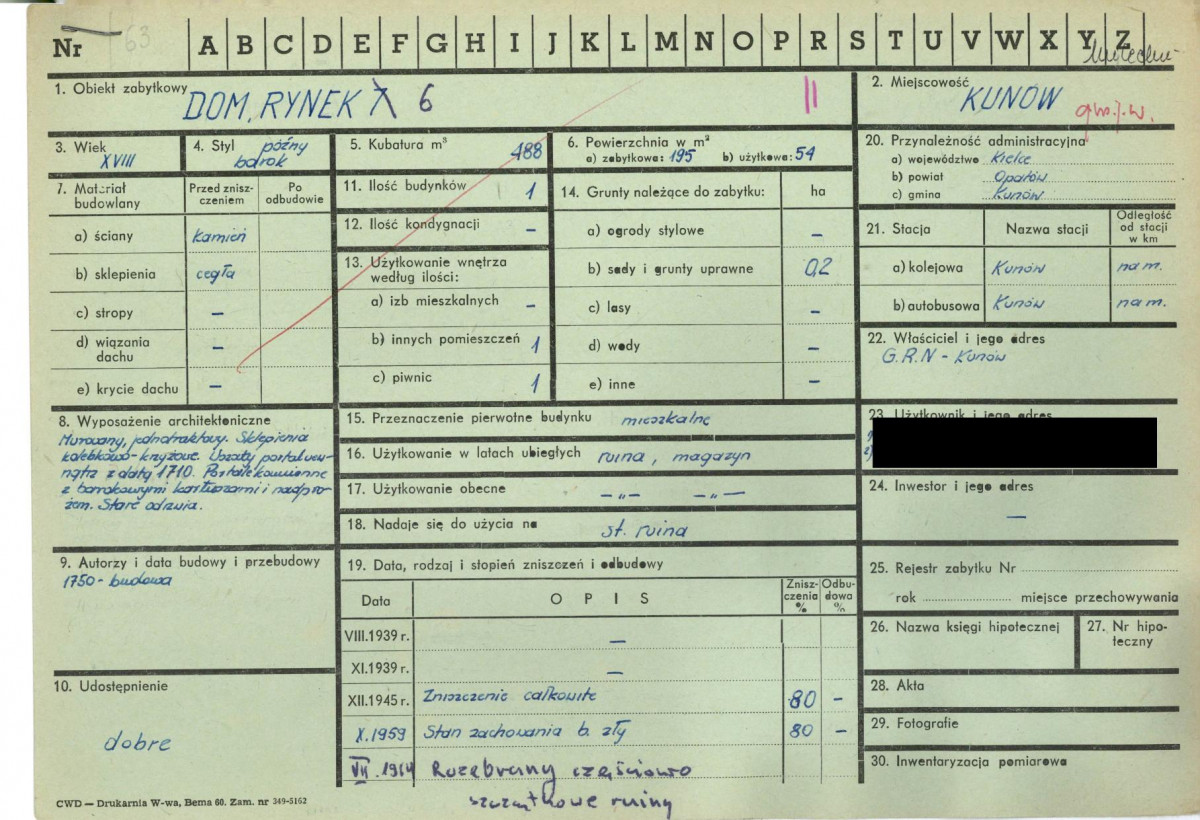 Nr 63 A B C D E F G H I J K L M N O P R S T U V W X Y Z
1. Obiekt zabytkowy DOM, RYNEK 7 6 II
2. Miejscowość KUNÓW
3. Wiek XVIII
4. Styl późny barok
5. Kubatura m³ 488
6. Powierzchnia w m²
a) zabytkowa: 195 b) użytkowa: 54
20. Przynależność administracyjna
a) województwo Kielce
b) powiat Opatów
c) gmina Kunów
7. Materiał budowlany
Przed zniszczeniem
Po odbudowie
a) ściany kamień
b) sklepienia cegła
c) stropy –
d) wiązania dachu –
e) krycie dachu –
11. Ilość budynków 1
12. Ilość kondygnacji –
13. Użytkowanie wnętrza według ilości:
a) izb mieszkalnych –
b) innych pomieszczeń 1
c) piwnic 1
14. Grunty należące do zabytku: ha
a) ogrody stylowe –
b) sady i grunty uprawne 0,2
c) lasy –
d) wody –
e) inne –
21. Stacja Nazwa stacji Odległość od stacji w km
a) kolejowa Kunów na m.
b) autobusowa Kunów na m.
22. Właściciel i jego adres
G.R.N - Kunów
8. Wyposażenie architektoniczne
Murowany, jednotraktowy. Sklepienia
kolebkowo-krzyżowe. Uszaty portal wew-
nątrz z datą 1710. Portale kamienne
z barokowymi kartuszami i nadpro-
żem. Stare odrzwia.
15. Przeznaczenie pierwotne budynku mieszkalne
16. Użytkowanie w latach ubiegłych ruina, magazyn
17. Użytkowanie obecne –„– –„–
18. Nadaje się do użycia na st. ruina
23. Użytkownik i jego adres
24. Inwestor i jego adres
–
9. Autorzy i data budowy i przebudowy
1750 - budowa
19. Data, rodzaj i stopień zniszczeń i odbudowy
Data OPIS Zniszczenia % Odbudowa %
VIII.1939 r. –
XI.1939 r. –
XII.1945 r. Zniszczenie całkowite 80 –
X.1959 Stan zachowania b. zły 80 –
VII.1964 Rozebrany częściowo
szczątkowe ruiny
25. Rejestr zabytku Nr
rok miejsce przechowywania
26. Nazwa księgi hipotecznej
27. Nr hipoteczny
10. Udostępnienie
dobre
28. Akta
29. Fotografie
30. Inwentaryzacja pomiarowa
CWD — Drukarnia W-wa, Bema 60. Zam. nr 349-5162